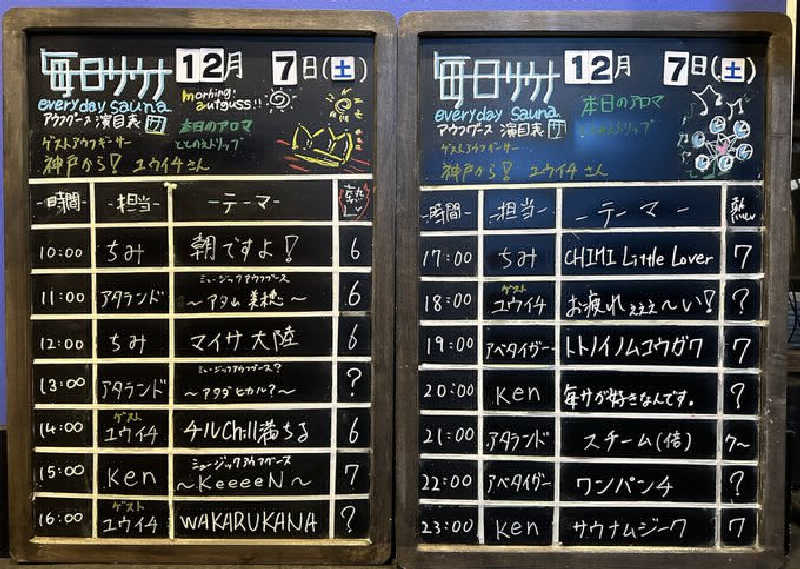 毎日サウナ 12月 7日(土)
everyday sauna
morning autguss!!
アウフグース 演目表
本日のアロマ
ととのえトリップ
ゲストアウフギーサー
神戸から! ユウイチさん
-時間- -担当- -テーマ-
10:00 ちみ 朝ですよ! 6
11:00 アタランド ミュージックアウフグース 〜アタム 美穂〜 6
12:00 ちみ マイサ大陸 6
13:00 アタランド ミュージックアウフグース? 〜アタダヒカル?〜 ?
14:00 ゲスト ユウイチ チルChill満ちる 6
15:00 Ken ミュージックアウフグース 〜KeeeeN〜 7
16:00 ゲスト ユウイチ WAKARUKANA ?
毎日サウナ 12月 7日(土)
everyday Sauna
本日のアロマ
アウフグース 演目表
ととのえトリップ
ゲストアウフギーサー
神戸から! ユウイチさん
-時間- -担当- -テーマ-
17:00 ちみ CHIMI Little Lover 7
18:00 ゲスト ユウイチ お疲れぇぇぇ〜い! ?
19:00 アベタイガー トトノイノムコウガワ 7
20:00 Ken 毎サが好きなんです。 ?
21:00 アタランド スチーム(倍) 7〜
22:00 アベタイガー ワンパンチ ?
23:00 Ken サウナムジーク 7